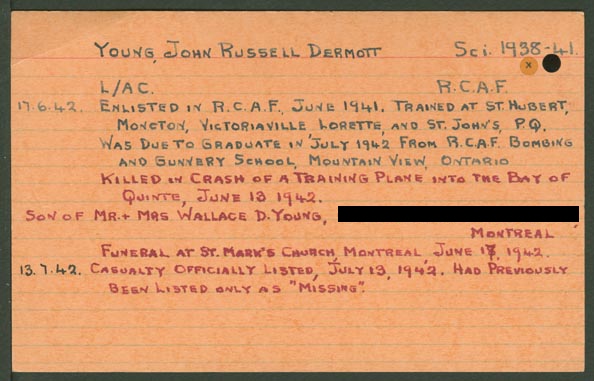 YOUNG, JOHN RUSSELL DERMOTT Sci. 1938-41.
L/AC. R.C.A.F.
17.6.42. ENLISTED IN R.C.A.F., JUNE 1941. TRAINED AT ST. HUBERT,
MONCTON, VICTORIAVILLE LORETTE, AND ST. JOHN'S, P.Q.
WAS DUE TO GRADUATE IN JULY 1942 FROM R.C.A.F. BOMBING
AND GUNNERY SCHOOL, MOUNTAIN VIEW, ONTARIO
KILLED IN CRASH OF A TRAINING PLANE INTO THE BAY OF
QUINTE, JUNE 13 1942.
SON OF MR. + MRS WALLACE D. YOUNG,
MONTREAL
FUNERAL AT ST. MARK'S CHURCH, MONTREAL, JUNE 17, 1942.
13.7.42. CASUALTY OFFICIALLY LISTED, JULY 13, 1942. HAD PREVIOUSLY
BEEN LISTED ONLY AS "MISSING".